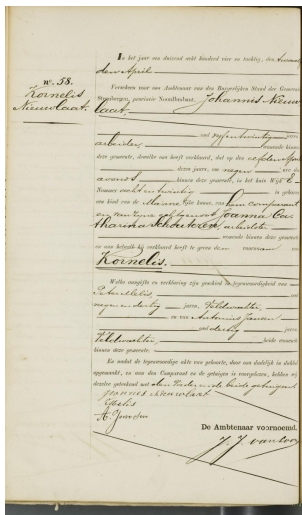 In het jaar een duizend acht honderd vier en tachtig, den
den April
N°. 58.
Kornelis
Nieuwlaat.
Verscheen voor ons Ambtenaar van den Burgerlijken Stand der Gemeente
provincie Noordbrabant, Johannis Nieuw
laat,
oud vijfentwintig jaren,
arbeider, wonende binnen
deze gemeente, dewelke ons heeft verklaard, dat op den
dezer jaars, om negen ure des
avonds, binnen deze gemeente, in het huis Wijk
Nummer achtentwintig is geboren
een kind van de Mannelijke kunne, van hem comparant
en van zijne echtgenoot Joanna Ca
tharina Schouteren, arbeidster
wonende binnen deze gemeente
en aan hetwelk hij verklaard heeft te geven den voornaam van
Kornelis.
Welke aangifte en verklaring zijn geschied in tegenwoordigheid van
Peter Melis, oud
negen en dertig jaren, Veldwachter,
en van Antonius
oud dertig jaren,
Veldwachter, beide wonende
binnen deze gemeente.
En nadat de tegenwoordige akte van geboorte, door ons dadelijk in dubbel
opgemaakt, en aan den Comparant en de getuigen is voorgelezen, hebben wij
dezelve geteekend met den Vader en de beide getuigen
joannes nieuwlaat
PMelis
De Ambtenaar voornoemd.